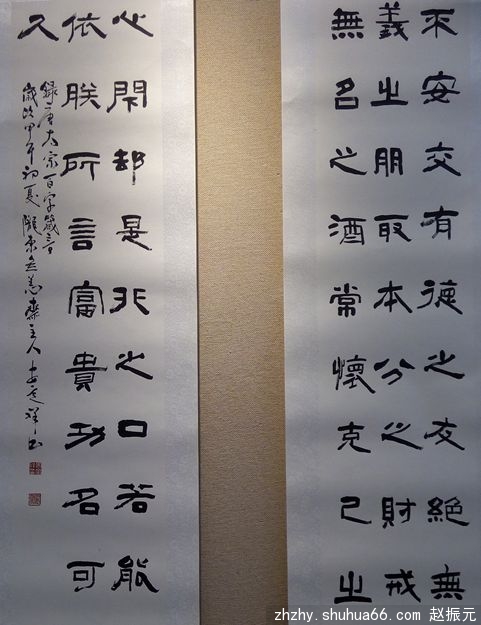 不安交有德之友絕無
義之朋取本分之財戒
無名之酒常懷克己之
心閉却是非之口若能
依朕所言富貴功名可
久
錄唐太宗百字箴言
歲次甲午初夏隴東齋主人書
zhzhy.shuhua66.com 赵振元